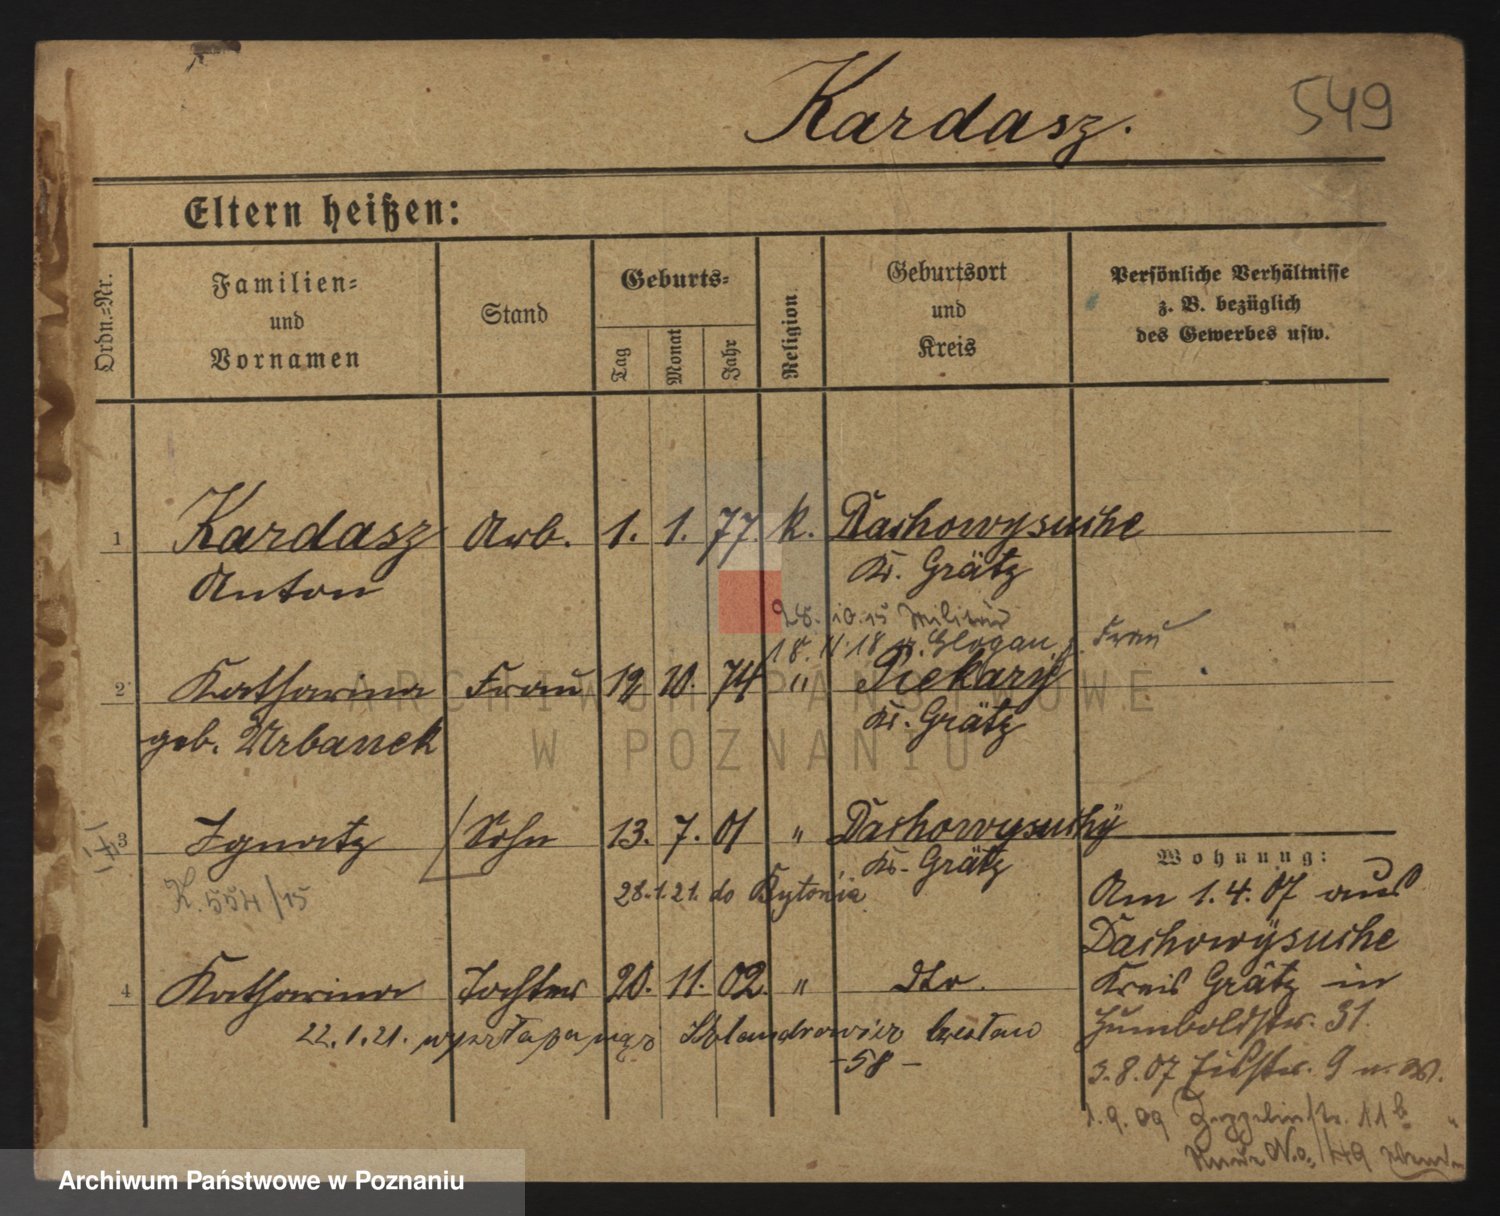 Kardasz.
549
Eltern heißen:
Ordn.=Nr.
Familien=
und
Vornamen
Stand
Geburts=
Tag
Monat
Jahr
Religion
Geburtsort
und
Kreis
Persönliche Verhältnisse
z. B. bezüglich
des Gewerbes usw.
1 Kardasz Arb. 1. 1. 77. k. Dachowysuche
Anton Kr. Grätz
28.10.15 Militär
18.11.18 v. Glogau z. Frau
2 Katharina Frau 19 10. 74 " Piekary
geb. Urbanek Kr. Grätz
3 Ignatz Sohn 13. 7. 01 " Dachowysuchy
Kr. Grätz
K. 554/15
28.1.21. do Bytonia
4 Katharina Tochter 20. 11. 02. " dto.
22.1.21.
-58-
Wohnung:
Am 1.4.07 aus
Dachowysuche
Kreis Grätz in
Humboldtstr. 31.
3.8.07 9
1.9.09 Zeppelinstr. 11b
No. /49
ARCHIWUM PAŃSTWOWE
W POZNANIU
Archiwum Państwowe w Poznaniu